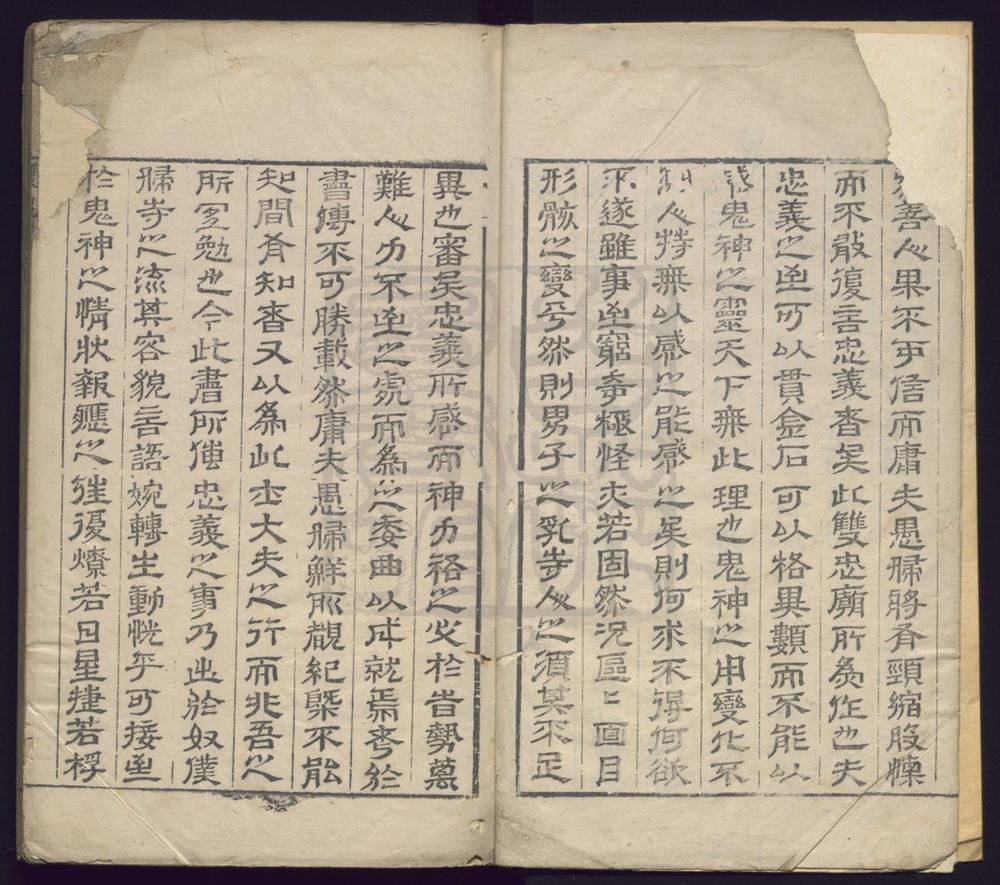 善人果不可信而庸夫愚婦將有頸縮股慄
而不敢復言忠義者矣此雙忠廟所為作也夫
忠義之至可以貫金石可以格異類而不能以
鬼神之靈天下無此理也鬼神之用變化不
人特無以感之能感之矣則何求不得何欲
不遂雖事至窮奇極怪夫若固然況區區面目
形骸之變乎然則男子之乳寺人之須其不足
異也審矣忠義所感而神力格之必於者勢萬
難人力不至之處而為之委曲以成就焉考於
書傳不可勝載然庸夫愚婦鮮所覩紀槩不能
知間有知者又以為此士大夫之行而非吾之
所宜勉也今此書所傳忠義之事乃出於奴僕
婦寺之流其容貌言語婉轉生動恍乎可接至
於鬼神之情狀報應之往復燎若日星捷若桴